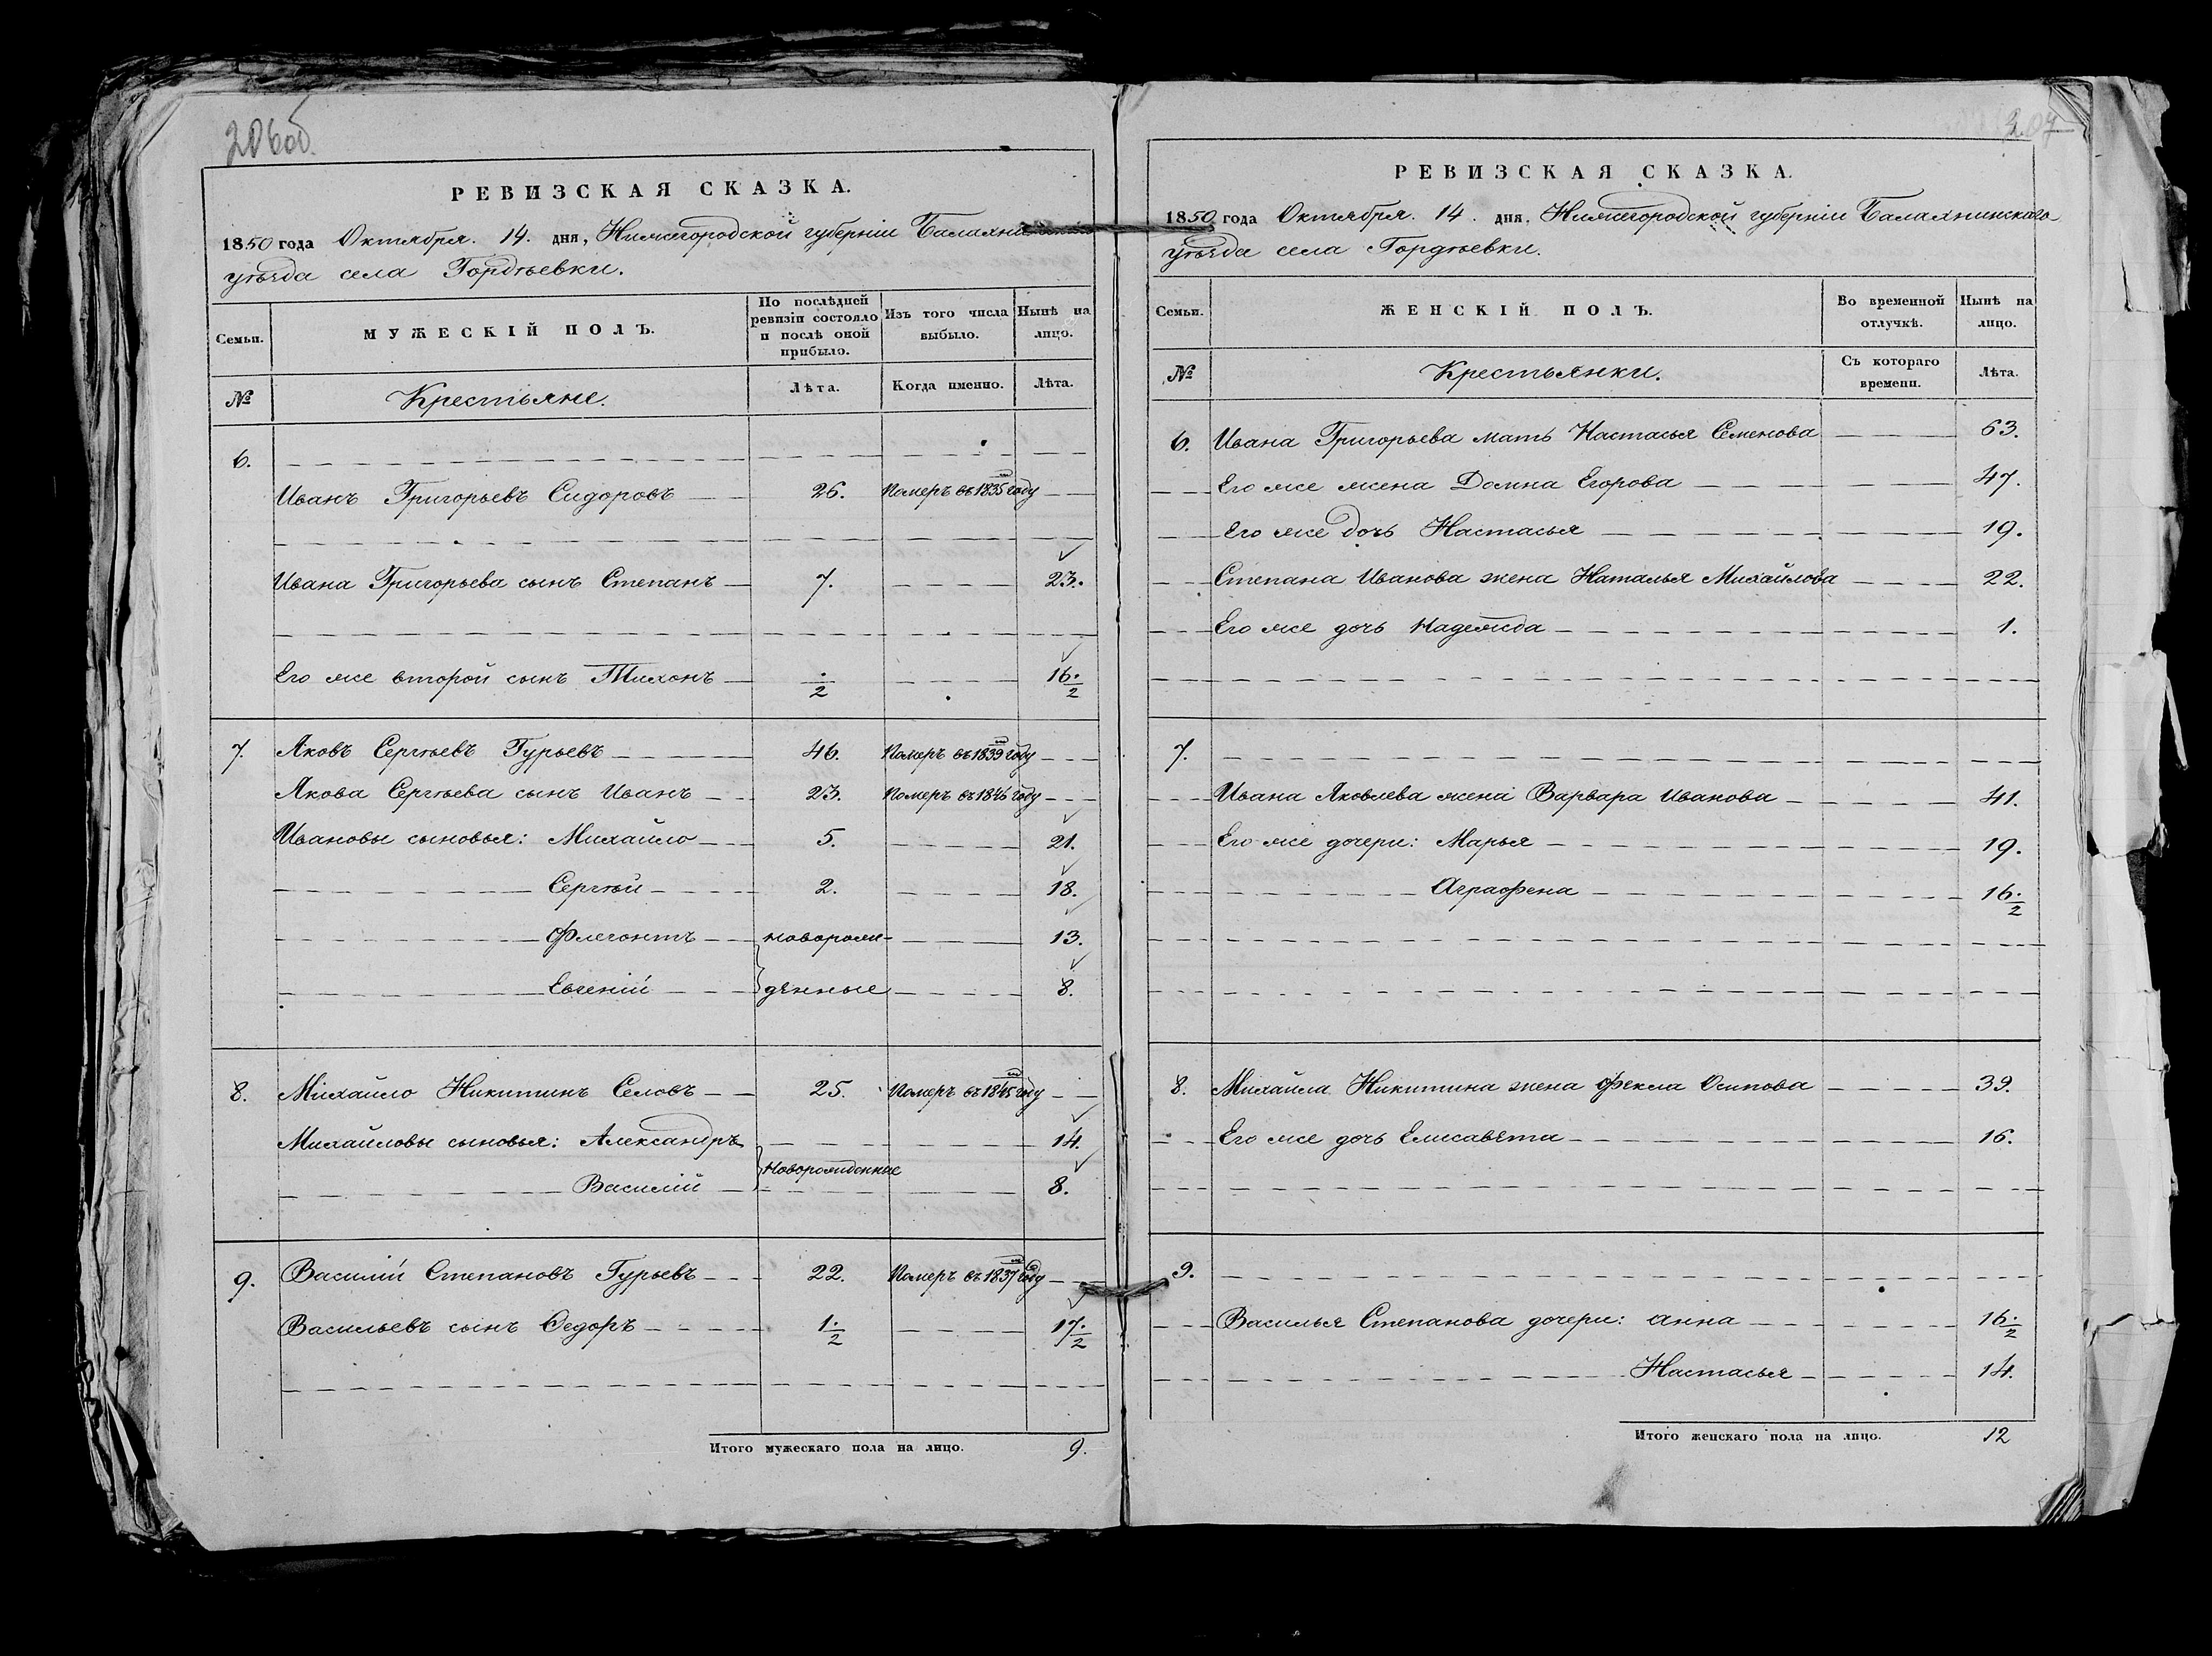 206об.
РЕВИЗСКАЯ СКАЗКА.
1850 года Октября. 14. дня, Нижегородской губерніи
уѣзда села Гордѣевки.
Семьи. МУЖЕСКІЙ ПОЛЪ. По послѣдней ревизіи состояло и послѣ оной прибыло. Изъ того числа выбыло. Нынѣ на лицо.
№ Крестьяне. Лѣта. Когда именно. Лѣта.
6.
Иванъ Григорьевъ Сидоровъ 26. Померъ въ 1835 году
Ивана Григорьева сынъ Степанъ 7. 23.
Его же второй сынъ Тихонъ ·/2 16·/2
7. Яковъ Сергѣевъ Гурьевъ 46. Померъ въ 1839 году
Якова Сергѣева сынъ Иванъ 23. Померъ въ 1846 году
Ивановы сыновья: Михайло 5. 21.
Сергѣй 2. 18.
Флегонтъ новорож- 13.
Евгеній денные 8.
8. Михайло Никитинъ Селовъ 25. Померъ въ 1845 году
Михайловы сыновья: Александръ 14.
Новорожденные
Василій 8.
9. Василій Степановъ Гурьевъ 22. Померъ въ 1837 году
Васильевъ сынъ Ѳедоръ 1·/2 17·/2
Итого мужескаго пола на лицо. 9.
207
РЕВИЗСКАЯ СКАЗКА.
1850 года Октября. 14. дня, Нижегородской губерніи Балахнинскаго
уѣзда села Гордѣевки.
Семьи. ЖЕНСКІЙ ПОЛЪ. Во временной отлучкѣ. Нынѣ на лицо.
№ Крестьянки. Съ котораго времени. Лѣта.
6. Ивана Григорьева мать Настасья Семенова 63.
Его же жена Домна Егорова 47.
Его же дочь Настасья 19.
Степана Иванова жена Наталья Михайлова 22.
Его же дочь Надежда 1.
7.
Ивана Яковлева жена Варвара Иванова 41.
Его же дочери: Марья 19.
Аграфена 16·/2
8. Михайла Никитина жена Фекла Осипова 39.
Его же дочь Елисавета 16.
9.
Василья Степанова дочери: Анна 16·/2
Настасья 14.
Итого женскаго пола на лицо. 12